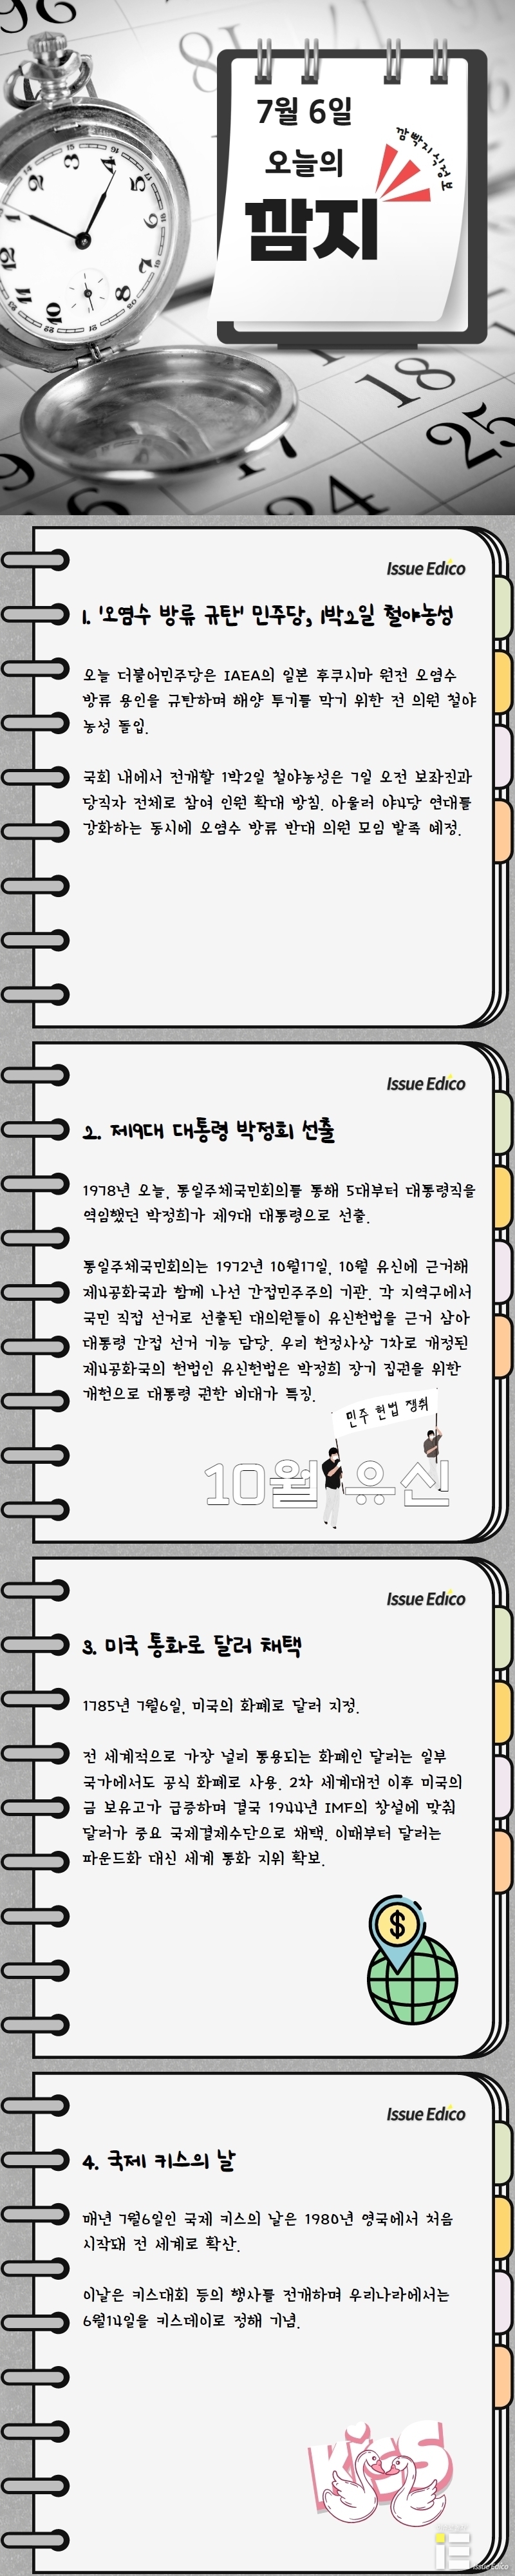 7월 6일
오늘의
깜지
깜빡지식정보
Issue Edico
1. '오염수 방류 규탄' 민주당, 1박2일 철야농성
오늘 더불어민주당은 IAEA의 일본 후쿠시마 원전 오염수
방류 용인을 규탄하며 해양 투기를 막기 위한 전 의원 철야
농성 돌입.
국회 내에서 전개할 1박2일 철야농성은 7일 오전 보좌진과
당직자 전체로 참여 인원 확대 방침. 아울러 야4당 연대를
강화하는 동시에 오염수 방류 반대 의원 모임 발족 예정.
Issue Edico
2. 제9대 대통령 박정희 선출
1978년 오늘, 통일주체국민회의를 통해 5대부터 대통령직을
역임했던 박정희가 제9대 대통령으로 선출.
통일주체국민회의는 1972년 10월17일, 10월 유신에 근거해
제4공화국과 함께 나선 간접민주주의 기관. 각 지역구에서
국민 직접 선거로 선출된 대의원들이 유신헌법을 근거 삼아
대통령 간접 선거 기능 담당. 우리 헌정사상 7차로 개정된
제4공화국의 헌법인 유신헌법은 박정희 장기 집권을 위한
개헌으로 대통령 권한 비대가 특징.
민주 헌법 쟁취
10월 유신
Issue Edico
3. 미국 통화로 달러 채택
1785년 7월6일, 미국의 화폐로 달러 지정.
전 세계적으로 가장 널리 통용되는 화폐인 달러는 일부
국가에서도 공식 화폐로 사용. 2차 세계대전 이후 미국의
금 보유고가 급증하며 결국 1944년 IMF의 창설에 맞춰
달러가 중요 국제결제수단으로 채택. 이때부터 달러는
파운드화 대신 세계 통화 지위 확보.
$
Issue Edico
4. 국제 키스의 날
매년 7월6일인 국제 키스의 날은 1980년 영국에서 처음
시작돼 전 세계로 확산.
이날은 키스대회 등의 행사를 전개하며 우리나라에서는
6월14일을 키스데이로 정해 기념.
KiSS
iE Issue Edico